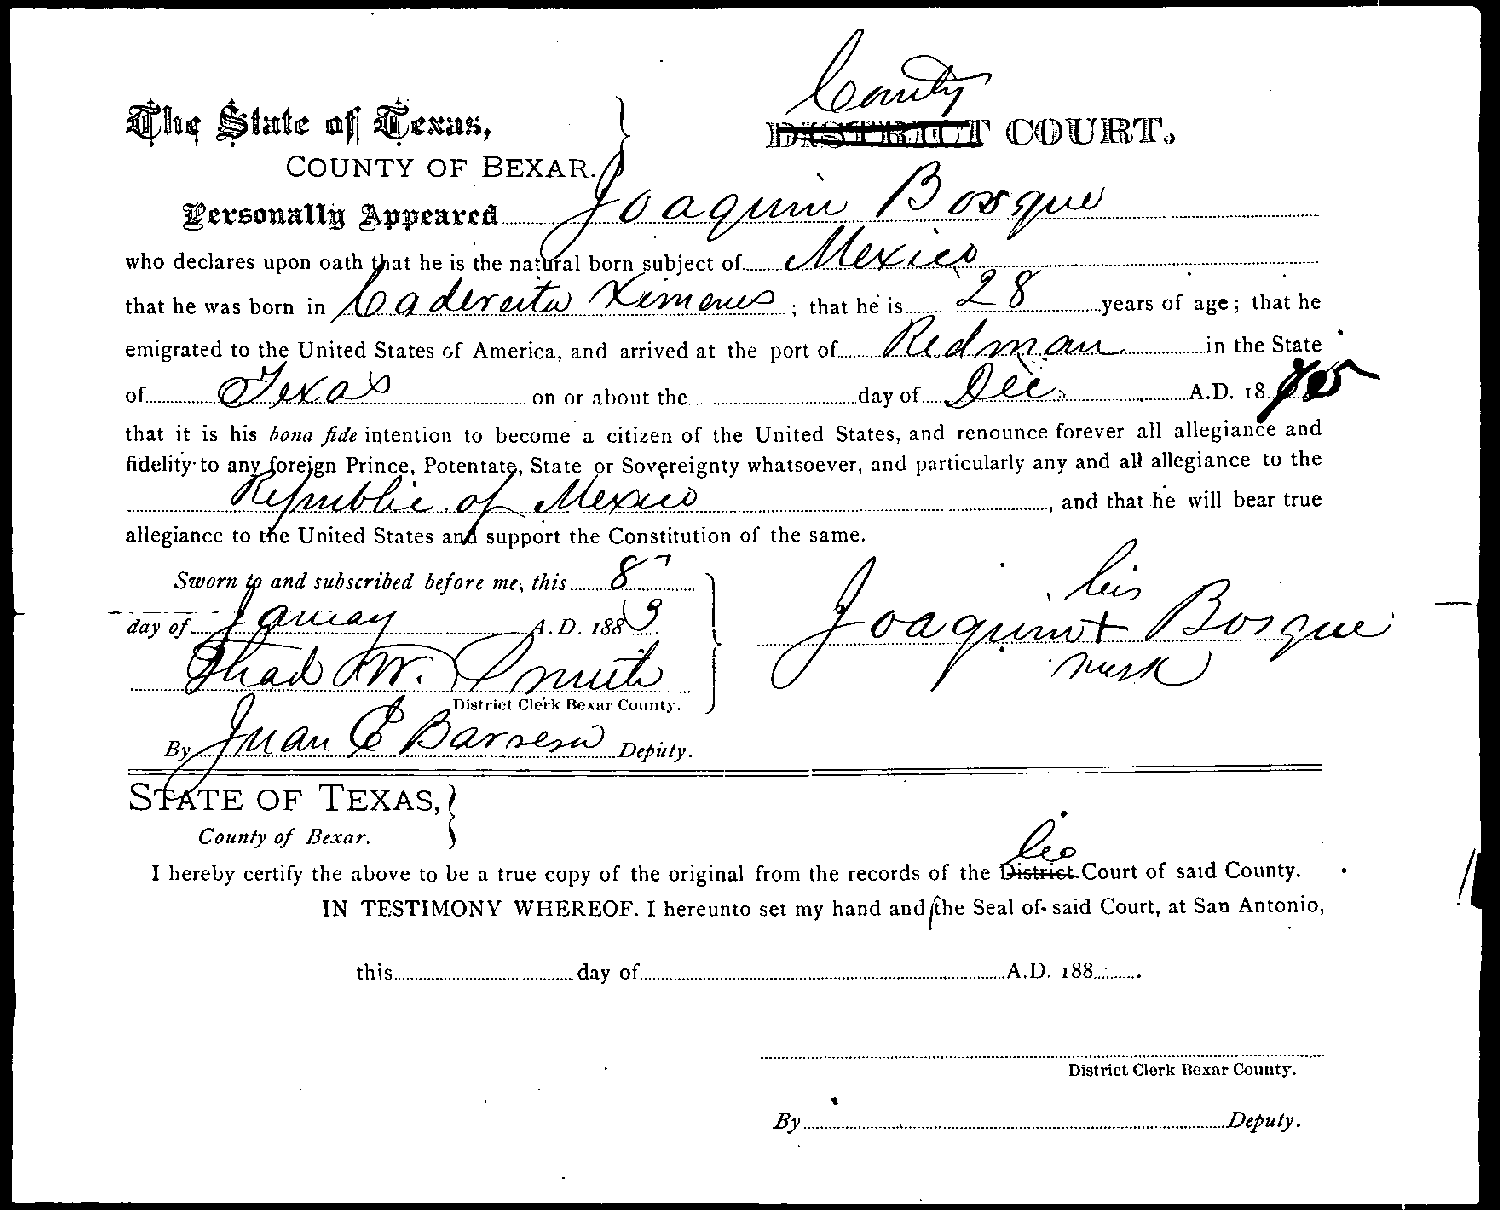 County
The State of Texas, DISTRICT COURT.
COUNTY OF BEXAR.
Personally Appeared Joaquin Bosque
who declares upon oath that he is the natural born subject of Mexico
that he was born in Cadereita Ximenes ; that he is 28 years of age; that he
emigrated to the United States of America, and arrived at the port of Redman in the State
of Texas on or about the day of Dec. A.D. 18
that it is his bona fide intention to become a citizen of the United States, and renounce forever all allegiance and
fidelity to any foreign Prince, Potentate, State or Sovereignty whatsoever, and particularly any and all allegiance to the
Republic of Mexico , and that he will bear true
allegiance to the United States and support the Constitution of the same.
Sworn to and subscribed before me, this 8"
day of January A.D. 188
Thad W. Smith
District Clerk Bexar County.
By Juan E Barrera Deputy.
his
Joaquin + Bosque
mark
STATE OF TEXAS,
County of Bexar.
Co
I hereby certify the above to be a true copy of the original from the records of the District Court of said County.
IN TESTIMONY WHEREOF, I hereunto set my hand and the Seal of said Court, at San Antonio,
this day of A.D. 188 .
District Clerk Bexar County.
By Deputy.